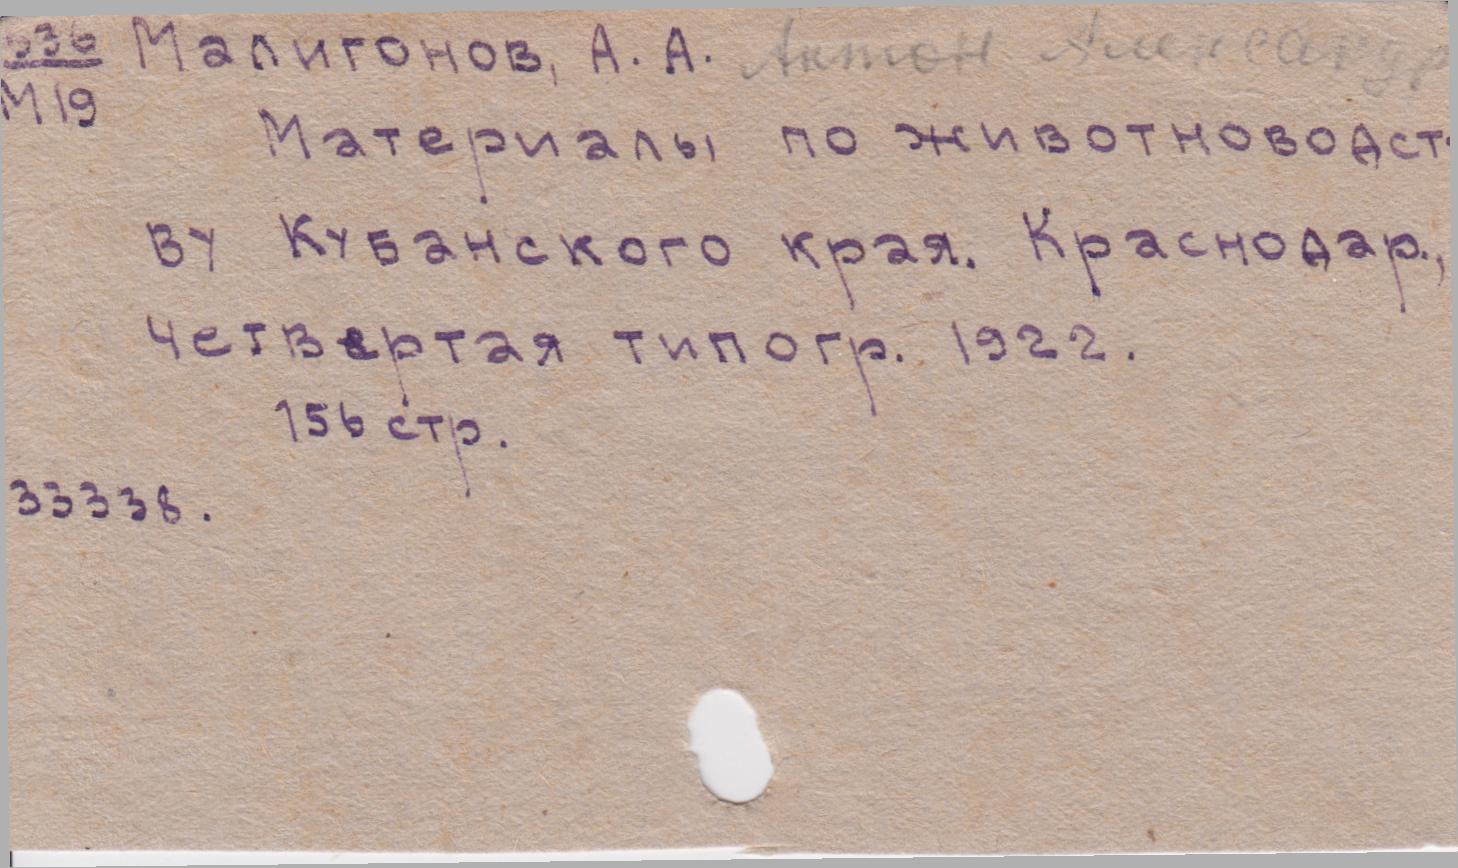 636 Малигонов, А. А. Антон Александр
М19
Материалы по животноводст-
ву Кубанского края. Краснодар.,
Четвертая типогр. 1922.
156 стр.
33338.